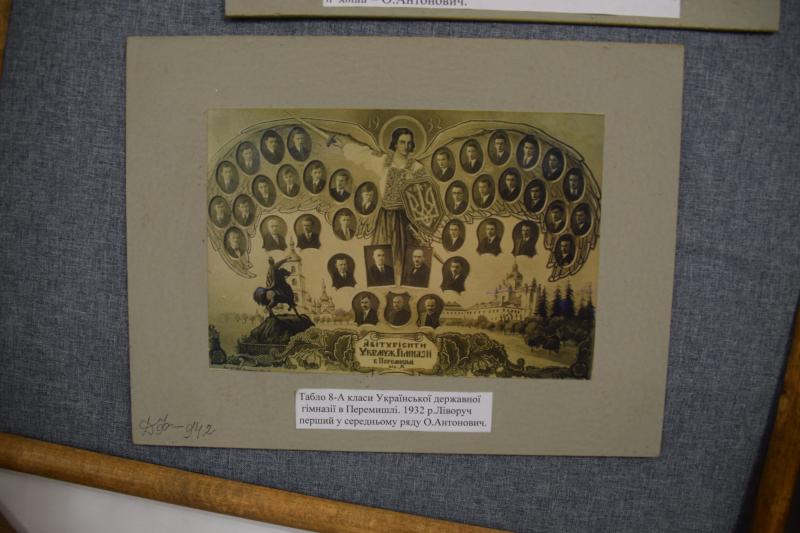 п'ятий – О.Антонович.
1932
Абітурієнти
Укр.муж.Гімназії
в Перемишлі
Табло 8-А класи Української державної
гімназії в Перемишлі. 1932 р.Ліворуч
перший у середньому ряду О.Антонович.
-942